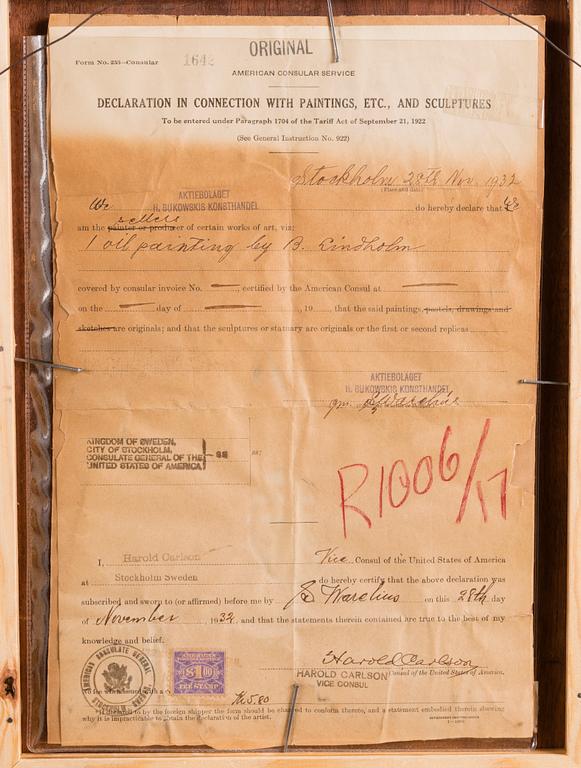 ORIGINAL
Form No. 253—Consular
1642
AMERICAN CONSULAR SERVICE
DECLARATION IN CONNECTION WITH PAINTINGS, ETC., AND SCULPTURES
To be entered under Paragraph 1704 of the Tariff Act of September 21, 1922
(See General Instruction No. 922)
Stockholm 28th Nov. 1932
(Place and date)
AKTIEBOLAGET
We H. BUKOWSKIS KONSTHANDEL do hereby declare that We
sellers
am the painter or producer of certain works of art, viz:
1 oil painting by B. Lindholm
covered by consular invoice No. — certified by the American Consul at —
on the — day of —, 19 , that the said paintings, pastels, drawings and
sketches are originals; and that the sculptures or statuary are originals or the first or second replicas
AKTIEBOLAGET
H. BUKOWSKIS KONSTHANDEL
KINGDOM OF SWEDEN,
CITY OF STOCKHOLM,
CONSULATE GENERAL OF THE
UNITED STATES OF AMERICA
SS
R1006/17
I, Harold Carlson Vice Consul of the United States of America
at Stockholm Sweden do hereby certify that the above declaration was
subscribed and sworn to (or affirmed) before me by E Warelius on this 28th day
of November, 1932, and that the statements therein contained are true to the best of my
knowledge and belief.
Harold Carlson
HAROLD CARLSON Consul of the United States of America.
VICE CONSUL
AMERICAN CONSULATE GENERAL
STOCKHOLM, SWEDEN
AMERICAN
$1.00
FEE STAMP
by the foreign shipper the form should be changed to conform thereto, and a statement embodied therein showing
why it is impracticable to obtain the declaration of the artist.